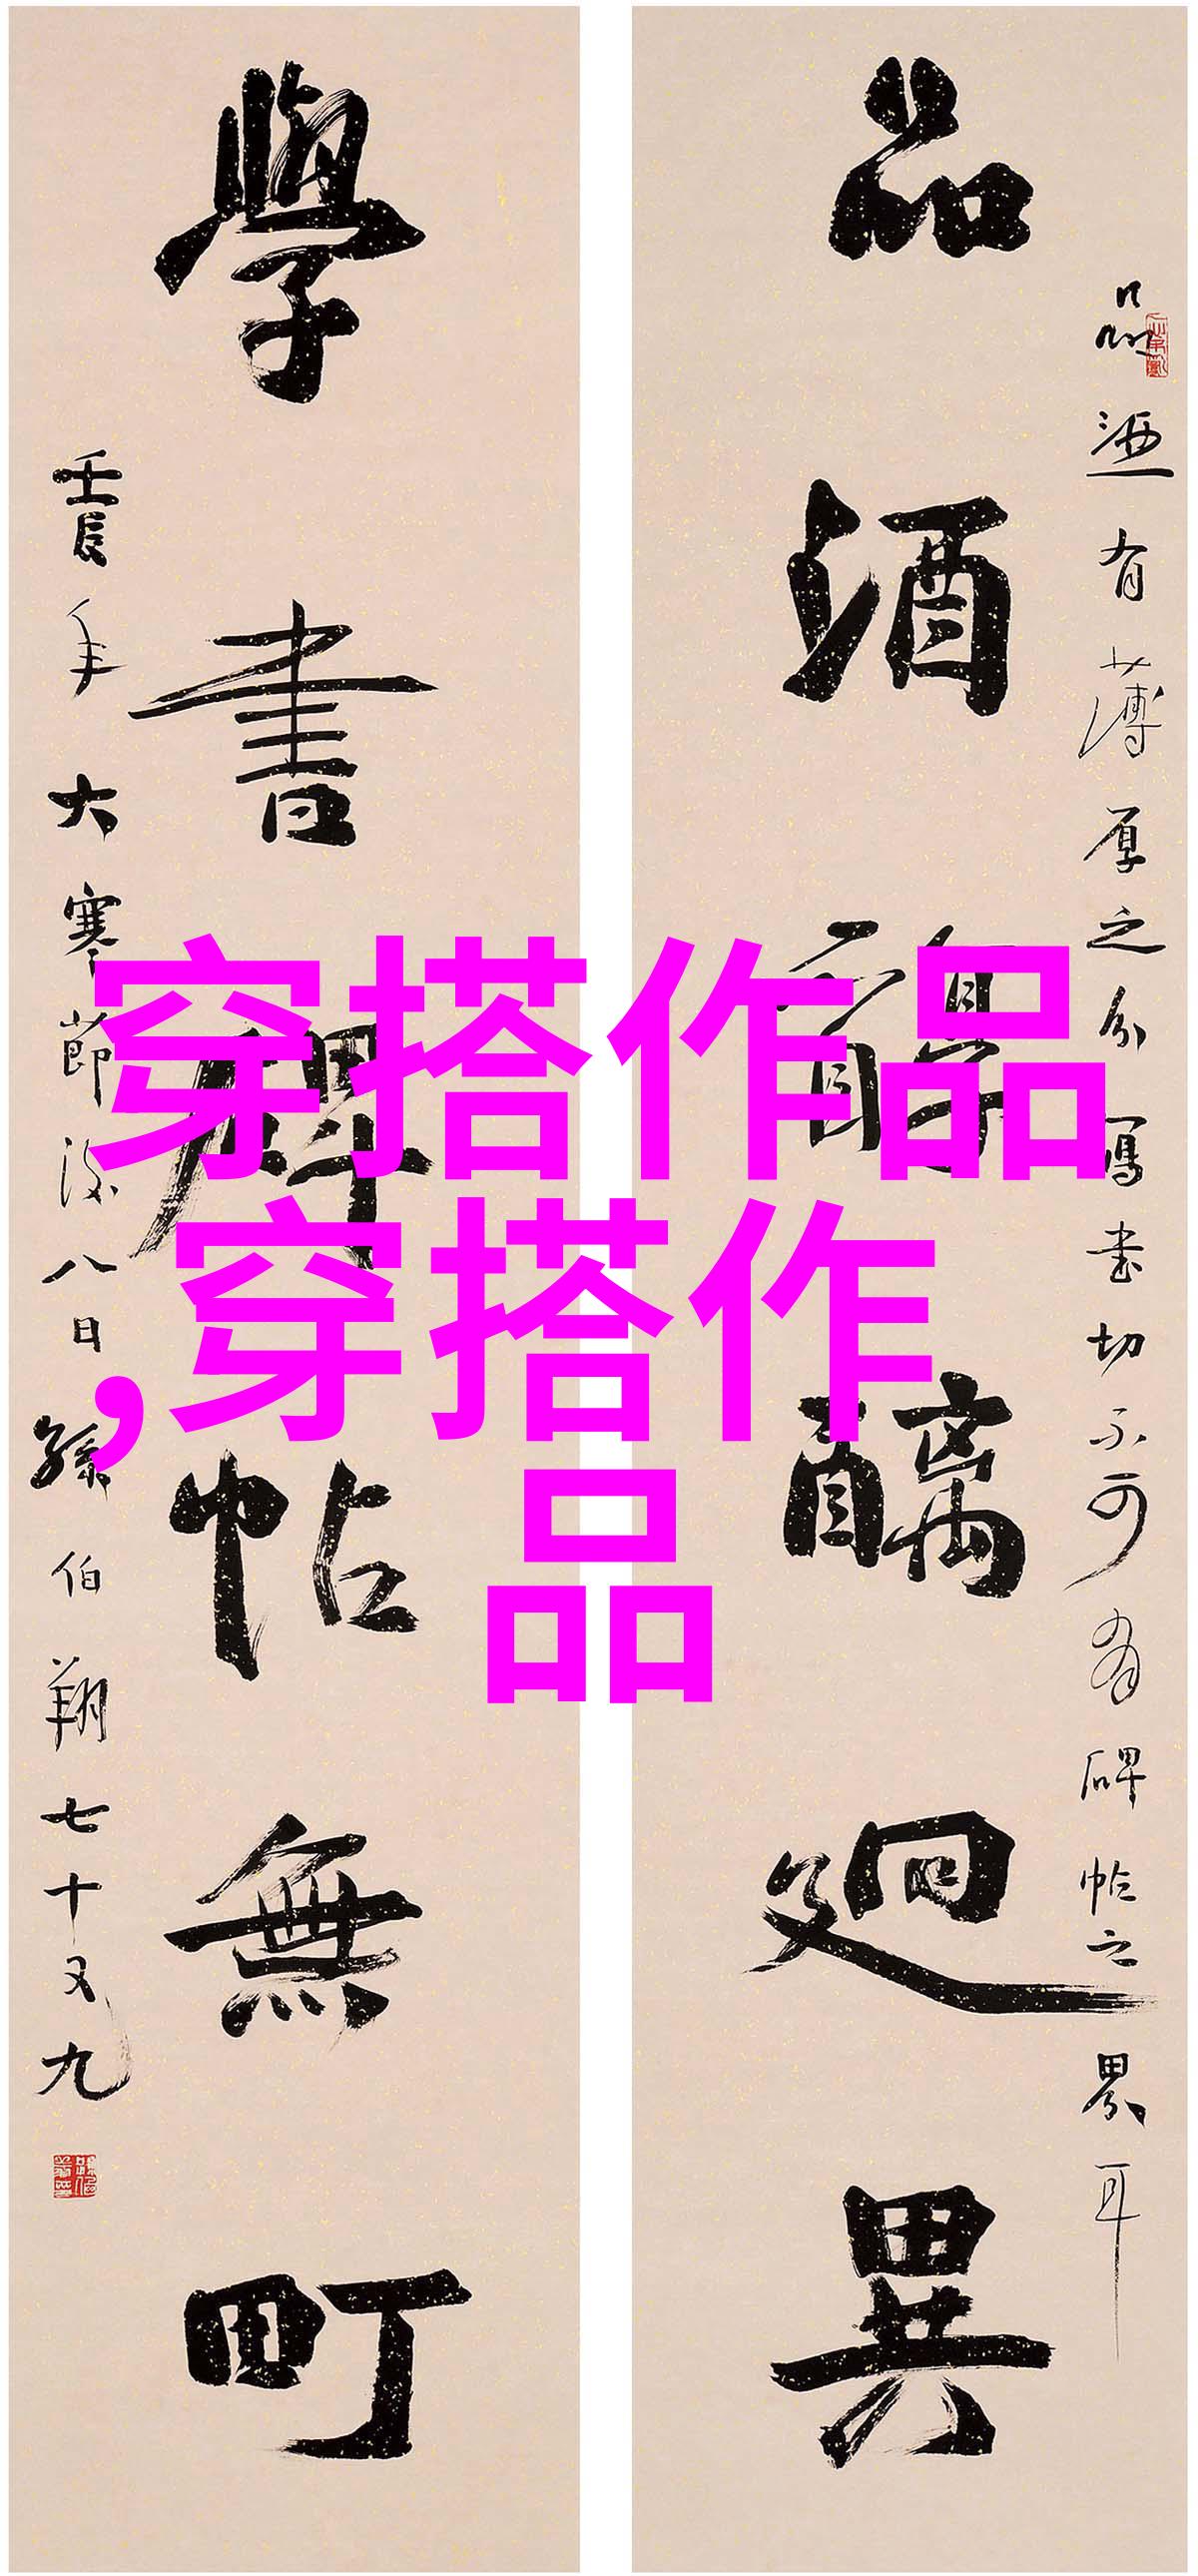 品酒醇醨迥異
品酒有薄厚之分寫書切不可有碑帖之界耳
學書碑帖無町
壬辰年大寒節後八日孫伯翔七十又九
穿搭作品
,穿搭作
品